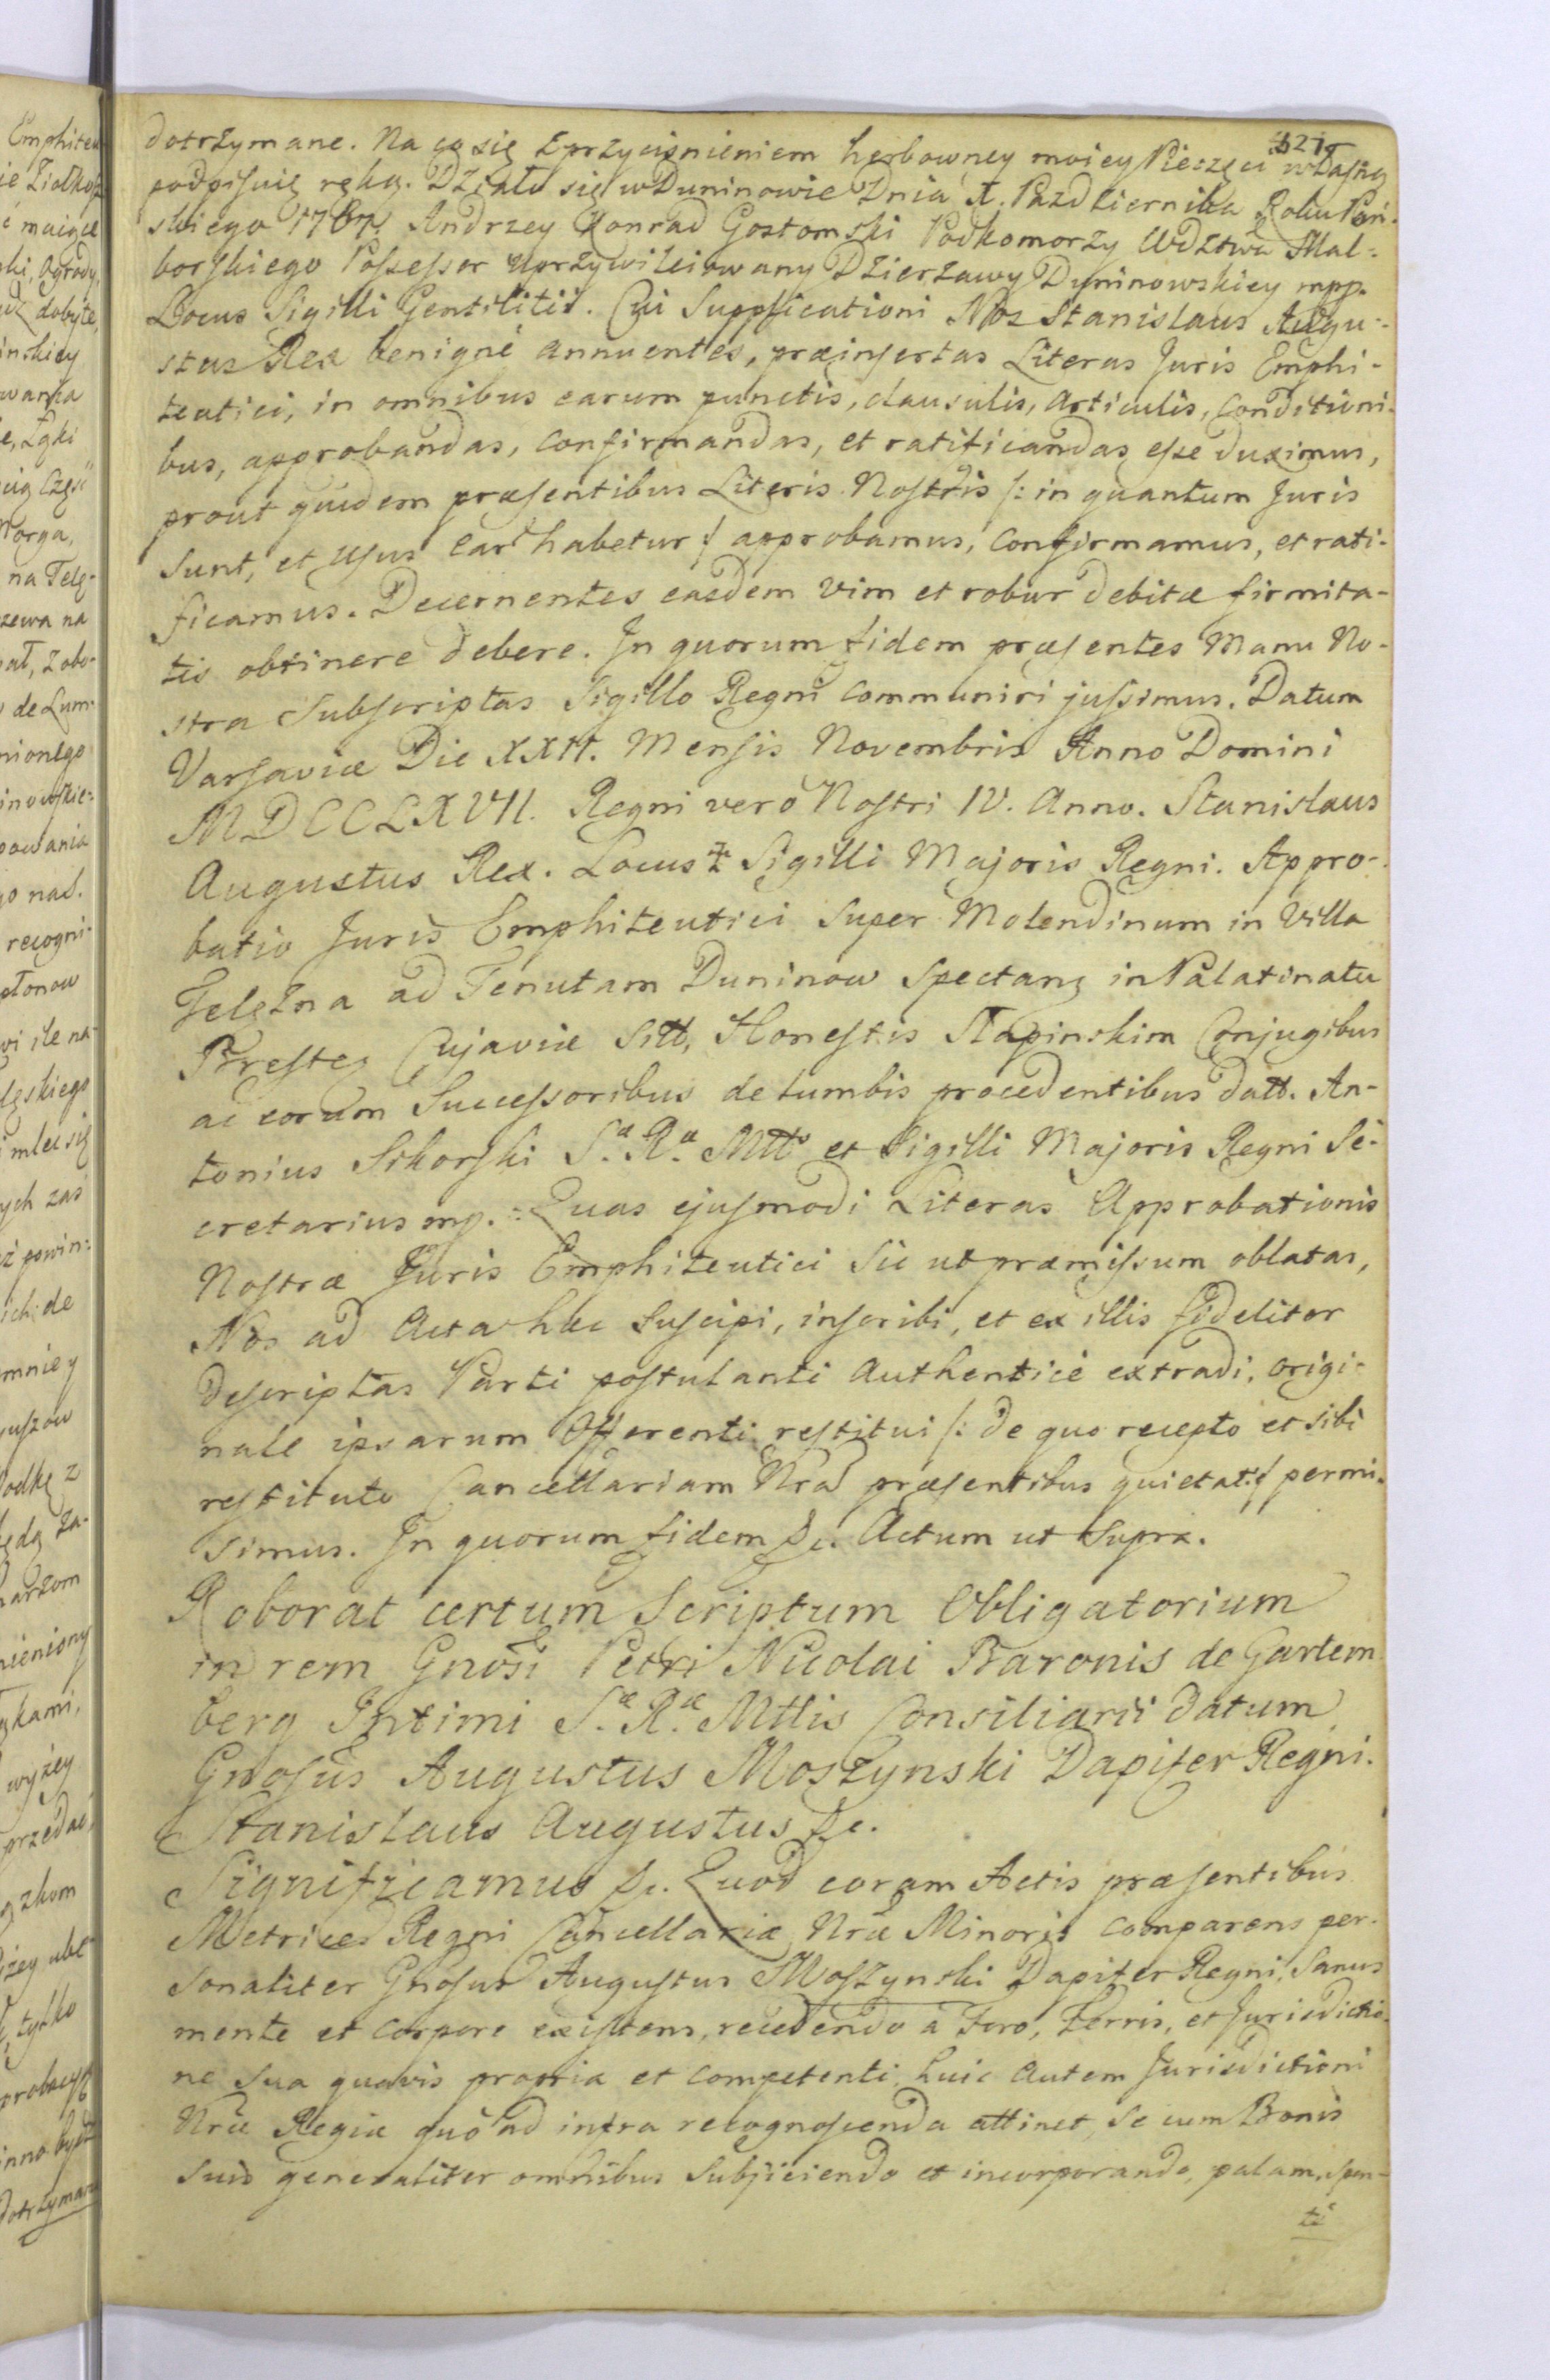 dotrzymane. Na co się z przyciśnieniem herbowney moiey Pieczęci własną
podpisuię ręką. Działo się w Duninowie Dnia X. Pazdziernika Roku Pań-
skiego 1767. Andrzey Konrad Gostomski Podkomorzy Wdztwa Mal-
borskiego Possessor uprzywileiowany Dzierzawy Duninowskiey mpp.
Locus Sigilli Gentilitii. Cui Supplicationi Nos Stanislaus Augu-
stus Rex benigné annuentes, præinsertas Literas Juris Emphi-
teutici, in omnibus earum punctis, clausulis, articulis, Conditioni-
bus, approbandas, confirmandas, et ratificandas esse duximus,
prout quidem præsentibus Literis Nostris /: in quantum Juris
sunt, et usus ear habetur :/ approbamus, confirmamus, et rati-
ficamus. Decernentes easdem vim et robur debitæ firmita-
tis obtinere debere. In quorum fidem præsentes Manu No-
stra Subscriptas Sigillo Regni communiri jussimus. Datum
Varsaviæ Die XXII. Mensis Novembris Anno Domini
MDCCLXVII. Regni verò Nostri IV. Anno. Stanislaus
Augustus Rex. Locus Sigilli Majoris Regni. Appro-
batio Juris Emphiteutici super Molendinum in Villa
Telęzna ad Tenutam Duninow Spectans in Palatinatu
Bresteñ Cujaviæ Sitt, Honestis Stapinskim Conjugibus
ac eorum Successoribus de lumbis procedentibus datt. An-
tonius Sikorski S.æ R.æ Mtts et Sigilli Majoris Regni Se-
cretarius mp. Quas ejusmodi Literas Approbationis
Nostræ Juris Emphiteutici sic ut præmissum oblatas,
Nos ad Acta hæc suscipi, inscribi, et ex illis fideliter
descriptas Parti postulanti Authenticè extradi, origi-
nale ipsarum Offerenti restitui /: de quo recepto et sibi
restituto Cancellariam Nrã præsentibus quietat :/ permi-
simus. In quorum fidem &c. Actum ut supra.
Roborat certum Scriptum Obligatorium
in rem Gnosi Petri Nicolai Baronis de Gartem
berg Intimi S.æ R.æ Mttis Consiliarii datum
Gnosus Augustus Moszynski Dapifer Regni.
Stanislaus Augustus &c.
Significamus &c. Quod coram Actis præsentibus
Metrices Regni Cancellariæ Nræ Minoris comparens per-
sonaliter Gnosus Augustus Moszynski Dapifer Regni, Sanus
mente et corpore existens, recedendo à Foro, Terris, et Jurisdictio-
ne sua quavis propria et competenti, huic autem Jurisdictioni
Nræ Regiæ quò ad infra recognoscenda attinet, se cum Bonis
suis generaliter omnibus subjiciendo et incorporando, palam, spon-
tè